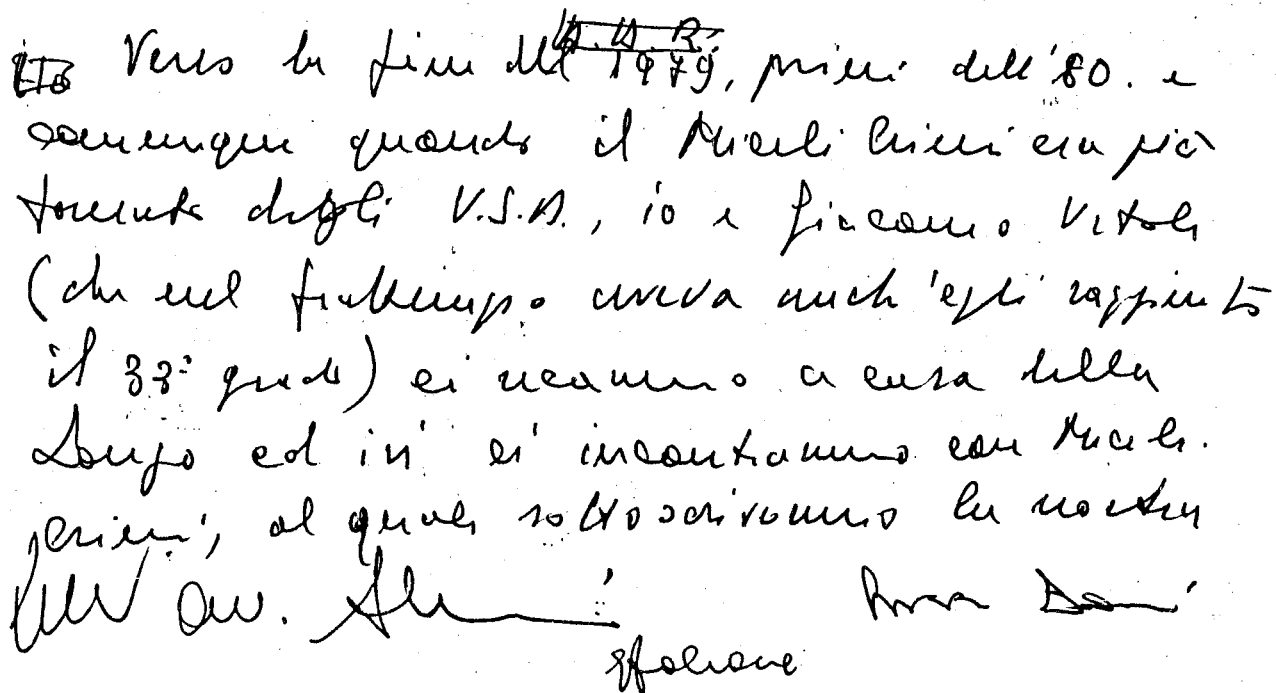 Verso la fine del 1979, primi dell'80. e
comunque quando il Miceli Crimi era già
tornato dagli U.S.A., io e Giacomo Vitale
(che nel frattempo aveva anch'egli raggiunto
il 33° grado) ci recammo a casa della
Longo ed ivi ci incontrammo con Miceli.
Crimi, al quale sottoscrivemmo la nostra